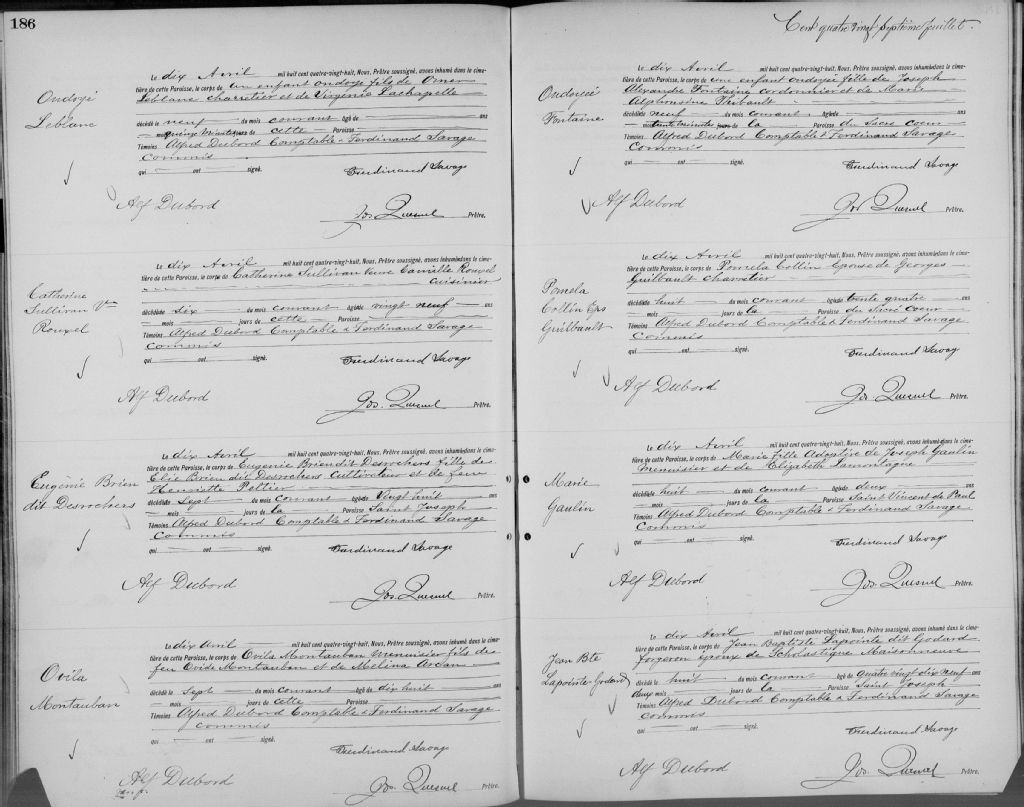 186
Ondoyé
Leblanc
Le dix Avril mil huit cent quatre-vingt-huit, Nous, Prêtre soussigné, avons inhumé dans le cime-
tière de cette Paroisse, le corps de un enfant ondoyé fils de Omer
Leblanc charretier et de Virginie Lachapelle
décédé le neuf du mois courant âgé de ans
quinze minutes jours de cette Paroisse
Témoins Alfred Dubord Comptable & Ferdinand Savage
Commis
qui ont signé.
Ferdinand Savage
Alf Dubord
Jos. Quesnel Prêtre.
Catherine
Sullivan Vve
Rouxel
Le dix Avril mil huit cent quatre-vingt-huit, Nous, Prêtre soussigné, avons inhumé dans le cime-
tière de cette Paroisse, le corps de Catherine Sullivan Veuve Camille Rouxel
Cuisinier
décédée le Six du mois courant âgée de vingt neuf ans
mois jours de cette Paroisse
Témoins Alfred Dubord Comptable & Ferdinand Savage
Commis
qui ont signé.
Ferdinand Savage
Alf Dubord
Jos. Quesnel Prêtre.
Eugenie Brien
dit Desrochers
Le dix Avril mil huit cent quatre-vingt-huit, Nous, Prêtre soussigné, avons inhumé dans le cime-
tière de cette Paroisse, le corps de Eugenie Brien dit Desrochers fille de
Elie Brien dit Desrochers Cultivateur et de feue
Henriette Peltier
décédée le Sept du mois courant âgée de Vingt huit ans
mois jours de la Paroisse Saint Joseph
Témoins Alfred Dubord Comptable & Ferdinand Savage
Commis
qui ont signé.
Ferdinand Savage
Alf Dubord
Jos. Quesnel Prêtre.
Ovila
Montauban
Le dix Avril mil huit cent quatre-vingt-huit, Nous, Prêtre soussigné, avons inhumé dans le cime-
tière de cette Paroisse, le corps de Ovila Montauban Menuisier fils de
feu Ovide Montauban et de Melina Arcan
décédé le Sept du mois courant âgé de dix huit ans
mois jours de cette Paroisse
Témoins Alfred Dubord Comptable & Ferdinand Savage
Commis
qui ont signé.
Ferdinand Savage
Alf Dubord
Jos. Quesnel Prêtre.
Cent quatre vingt septième feuillet.
Ondoyée
Fontaine
Le dix Avril mil huit cent quatre-vingt-huit, Nous, Prêtre soussigné, avons inhumé dans le cime-
tière de cette Paroisse, le corps de une enfant ondoyée fille de Joseph
Alexandre Fontaine cordonnier et de Marie
Alphonsine Thibault
décédée le neuf du mois courant âgée de ans
trente minutes jours de la Paroisse du Sacré Coeur
Témoins Alfred Dubord Comptable & Ferdinand Savage
Commis
qui ont signé.
Ferdinand Savage
Alf Dubord
Jos Quesnel Prêtre.
Pomela
Collin Eps
Guilbault
Le dix Avril mil huit cent quatre-vingt-huit, Nous, Prêtre soussigné, avons inhumé dans le cime-
tière de cette Paroisse, le corps de Pomela Collin Epouse de Georges
Guilbault charretier
décédée le huit du mois courant âgée de trente quatre ans
mois jours de la Paroisse du Sacré Coeur
Témoins Alfred Dubord Comptable & Ferdinand Savage
Commis
qui ont signé.
Ferdinand Savage
Alf Dubord
Jos. Quesnel Prêtre.
Marie
Gaulin
Le dix Avril mil huit cent quatre-vingt-huit, Nous, Prêtre soussigné, avons inhumé dans le cime-
tière de cette Paroisse, le corps de Marie fille Adoptive de Joseph Gaulin
Menuisier et de Elizabeth Lamontagne
décédée le huit du mois courant âgée de deux ans
mois jours de la Paroisse Saint Vincent de Paul
Témoins Alfred Dubord Comptable & Ferdinand Savage
Commis
qui ont signé.
Ferdinand Savage
Alf Dubord
Jos. Quesnel Prêtre.
Jean Bte
Lapointe Godard
Le dix Avril mil huit cent quatre-vingt-huit, Nous, Prêtre soussigné, avons inhumé dans le cime-
tière de cette Paroisse, le corps de Jean Baptiste Lapointe dit Godard
forgeron époux de Scholastique Maisonneuve
décédé le huit du mois courant âgé de quatre vingt dix neuf ans
deux mois jours de la Paroisse Saint Joseph
Témoins Alfred Dubord Comptable & Ferdinand Savage
Commis
qui ont signé.
Ferdinand Savage
Alf Dubord
Jos. Quesnel Prêtre.